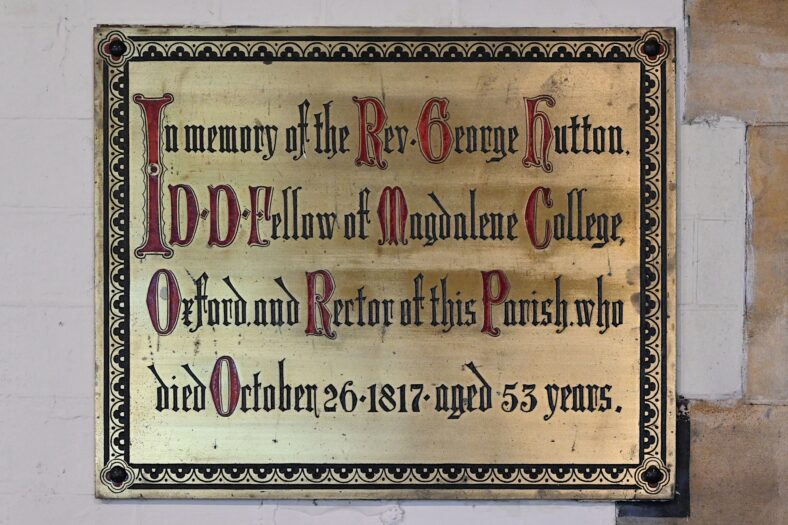 In memory of the Rev. George Hutton.
D·D·Fellow of Magdalene College,
Oxford, and Rector of this Parish, who
died October 26·1817·aged 53 years.